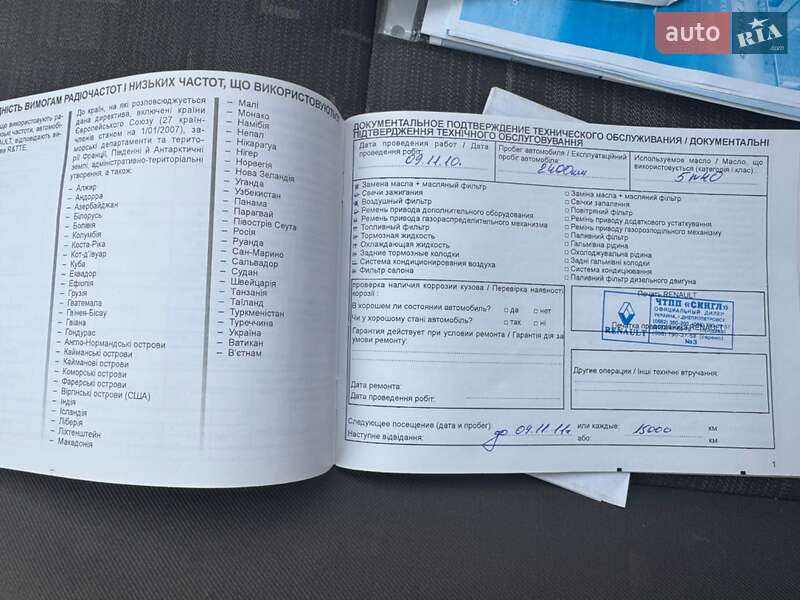 auto RIA
ДНІСТЬ ВИМОГАМ РАДІОЧАСТОТ І НИЗЬКИХ ЧАСТОТ, ЩО ВИКОРИСТОВУЮТЬ
що використовують ра-
автомобі-
AULT, відповідають ви-
R&TTE.
До країн, на які розповсюджується
дана директива, включені країни
Європейського Союзу (27 країн-
членів станом на 1/01/2007), за-
морські департаменти та терито-
рії Франції, Південні й Антарктичні
землі, адміністративно-територіальні
утворення, а також:
– Алжир
– Андорра
– Азербайджан
– Білорусь
– Болівія
– Колумбія
– Коста-Ріка
– Кот-д'івуар
– Куба
– Еквадор
– Ефіопія
– Грузія
– Гватемала
– Гвінея-Бісау
– Гвіана
– Гондурас
– Англо-Нормандські острови
– Кайманські острови
– Кайманові острови
– Коморські острови
– Фарерські острови
– Віргінські острови (США)
– Індія
– Ісландія
– Ліберія
– Ліхтенштейн
– Македонія
– Малі
– Монако
– Намібія
– Непал
– Нікарагуа
– Нігер
– Норвегія
– Нова Зеландія
– Уганда
– Узбекистан
– Панама
– Парагвай
– Півострів Сеута
– Росія
– Руанда
– Сан-Марино
– Сальвадор
– Судан
– Швейцарія
– Танзанія
– Таїланд
– Туркменістан
– Туреччина
– Україна
– Ватикан
– В'єтнам
ДОКУМЕНТАЛЬНОЕ ПОДТВЕРЖДЕНИЕ ТЕХНИЧЕСКОГО ОБСЛУЖИВАНИЯ / ДОКУМЕНТАЛЬНІ
ПІДТВЕРДЖЕННЯ ТЕХНІЧНОГО ОБСЛУГОВУВАННЯ
Дата проведения работ / Дата
проведення робіт:
09.11.10.
Пробег автомобиля / Експлуатаційний
пробіг автомобіля:
2400км
Используемое масло / Масло, що
використовується (категорія і клас):
5w40
Замена масла + масляный фильтр
Свечи зажигания
Воздушный фильтр
Ремень привода дополнительного оборудования
Ремень привода газораспределительного механизма
Топливный фильтр
Тормозная жидкость
Охлаждающая жидкость
Задние тормозные колодки
Система кондиционирования воздуха
Фильтр салона
Заміна масла + масляний фільтр
Свічки запалення
Повітряний фільтр
Ремінь приводу додаткового устаткування
Ремінь приводу газорозподільного механізму
Паливний фільтр
Гальмівна рідина
Охолоджувальна рідина
Задні гальмівні колодки
Система кондиціювання
Паливний фільтр дизельного двигуна
проверка наличия коррозии кузова / Перевірка наявності
корозії :
В хорошем ли состоянии автомобиль? да нет
Чи у хорошому стані автомобіль? так ні
Гарантия действует при условии ремонта / Гарантія діє за
умови ремонту:
Дата ремонта:
Дата проведення робіт:
Печать RENAULT
ЧТПП «СИНГЛ»
ОФИЦИАЛЬНЫЙ ДИЛЕР
УКРАИНА, г.ДНЕПРОПЕТРОВСК
RENAULT
№3
Другие операции / Інші технічні втручання:
Следующее посещение (дата и пробег)
Наступне відвідання:
до 09.11.11г.
или каждые:
або:
15000
км
км
1